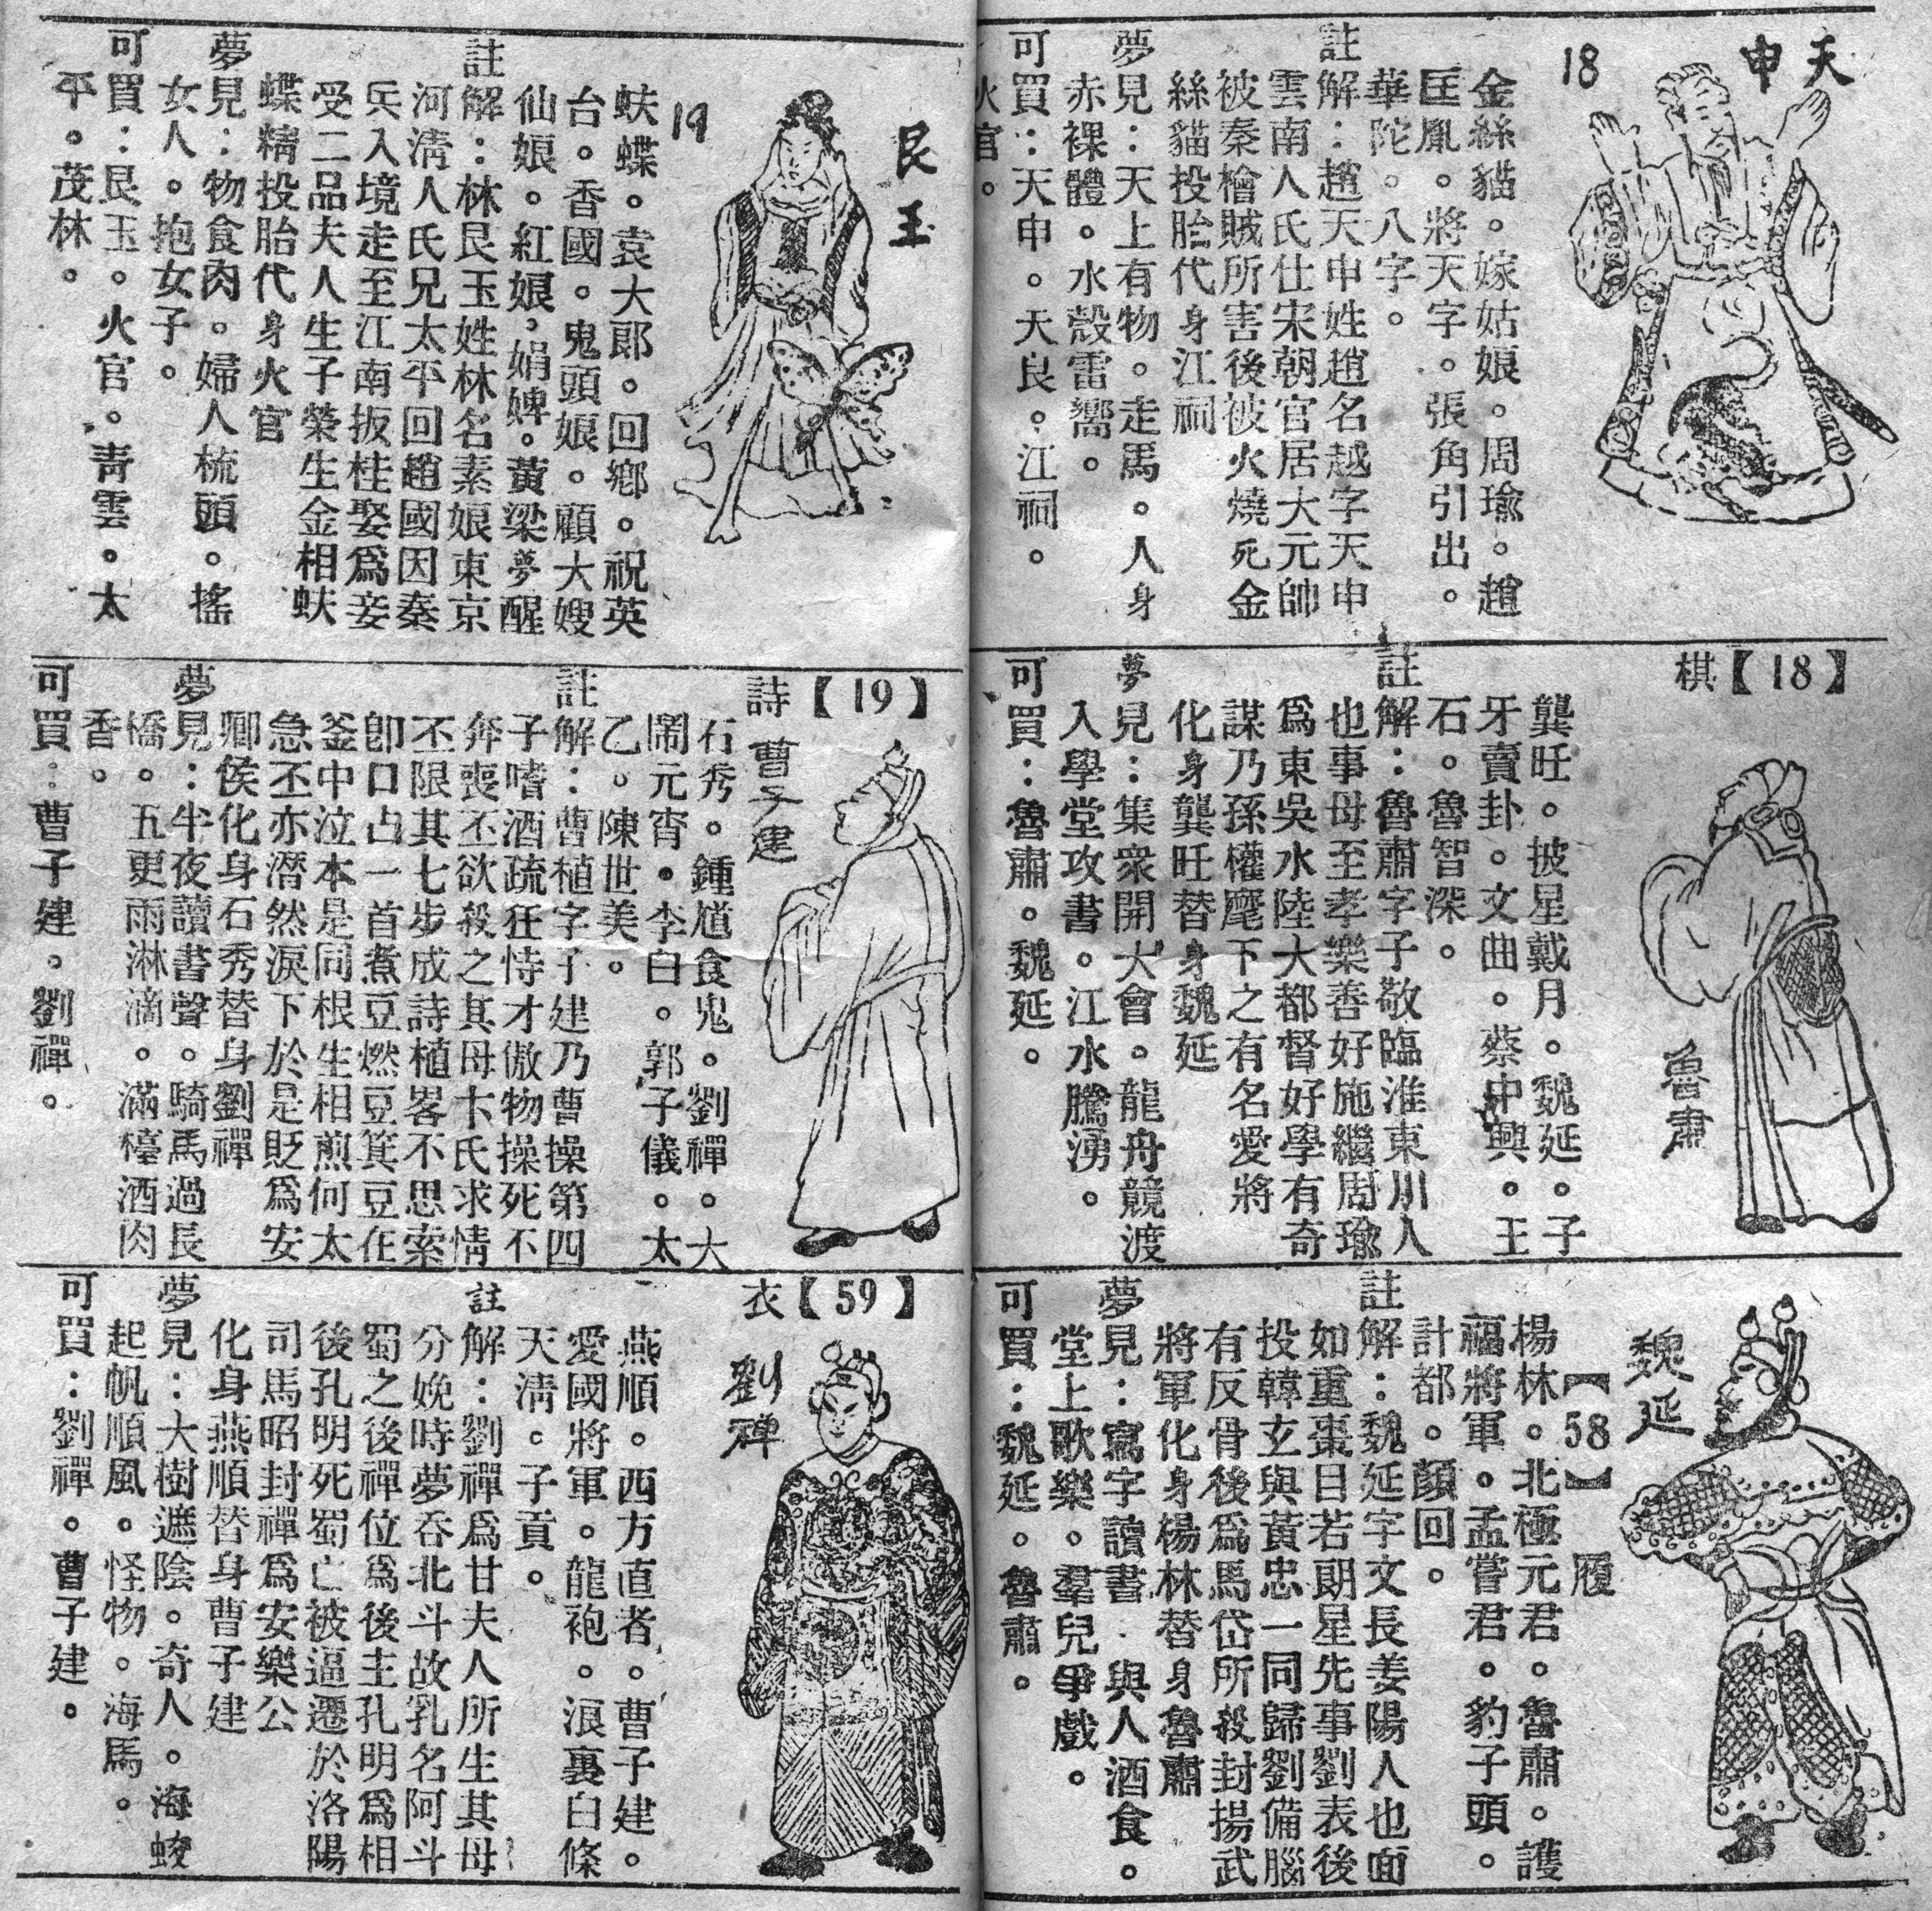 天申
18
金絲貓。嫁姑娘。周瑜。趙
匡胤。將天字。張角引出。
華陀。八字。
註解：趙天申姓趙名越字天申
雲南人氏仕宋朝官居大元帥
被秦檜賊所害後被火燒死金
絲貓投胎代身江祠
夢見：天上有物。走馬。人身
赤裸體。水殼雷嚮。
可買：天申。天良。江祠。
火官。
棋【18】
魯肅
龔旺。披星戴月。魏延。子
牙賣卦。文曲。蔡中興。王
石。魯智深。
註解：魯肅字子敬臨淮東川人
也事母至孝樂善好施繼周瑜
爲東吳水陸大都督好學有奇
謀乃孫權麾下之有名愛將
化身龔旺替身魏延
夢見：集衆開大會。龍舟競渡
入學堂攻書。江水騰湧。
可買：魯肅。魏延。
魏延
【58】履
楊林。北極元君。魯肅。護
福將軍。孟嘗君。豹子頭。
計都。顏回。
註解：魏延字文長姜陽人也面
如重棗目若朗星先事劉表後
投韓玄與黃忠一同歸劉備腦
有反骨後爲馬岱所殺封揚武
將軍化身楊林替身魯肅
夢見：寫字讀書．與人酒食。
堂上歌樂。羣兒爭戲。
可買：魏延。魯肅。
艮玉
19
蚨蝶。袁大郎。回鄉。祝英
台。香國。鬼頭娘。顧大嫂
仙娘。紅娘，娟婢。黃梁夢醒
註解：林艮玉姓林名素娘東京
河淸人氏兄太平回趙國因秦
兵入境走至江南扳桂娶爲妾
受二品夫人生子榮生金相蚨
蝶精投胎代身火官
夢見：物食肉。婦人梳頭。搖
女人。抱女子。
可買：艮玉。火官。靑雲。太
平。茂林。
詩【19】
曹子建
石秀。鍾馗食鬼。劉禪。大
鬧元宵。李白。郭子儀。太
乙。陳世美。
註解：曹植字子建乃曹操第四
子嗜酒疏狂恃才傲物操死不
奔喪丕欲殺之其母卞氏求情
丕限其七步成詩植畧不思索
卽口占一首煮豆燃豆箕豆在
釜中泣本是同根生相煎何太
急丕亦潛然淚下於是貶爲安
鄉侯化身石秀替身劉禪
夢見：半夜讀書聲。騎馬過長
橋。五更雨淋滴。滿檯酒肉
香。
可買：曹子建。劉禪。
衣【59】
劉禪
燕順。西方直者。曹子建。
愛國將軍。龍袍。浪裏白條
天淸。子貢。
註解：劉禪爲甘夫人所生其母
分娩時夢吞北斗故乳名阿斗
蜀之後禪位爲後主孔明爲相
後孔明死蜀亡被逼遷於洛陽
司馬昭封禪爲安樂公
化身燕順替身曹子建
夢見：大樹遮陰。奇人。海蛟
起帆順風。怪物。海馬。
可買：劉禪。曹子建。